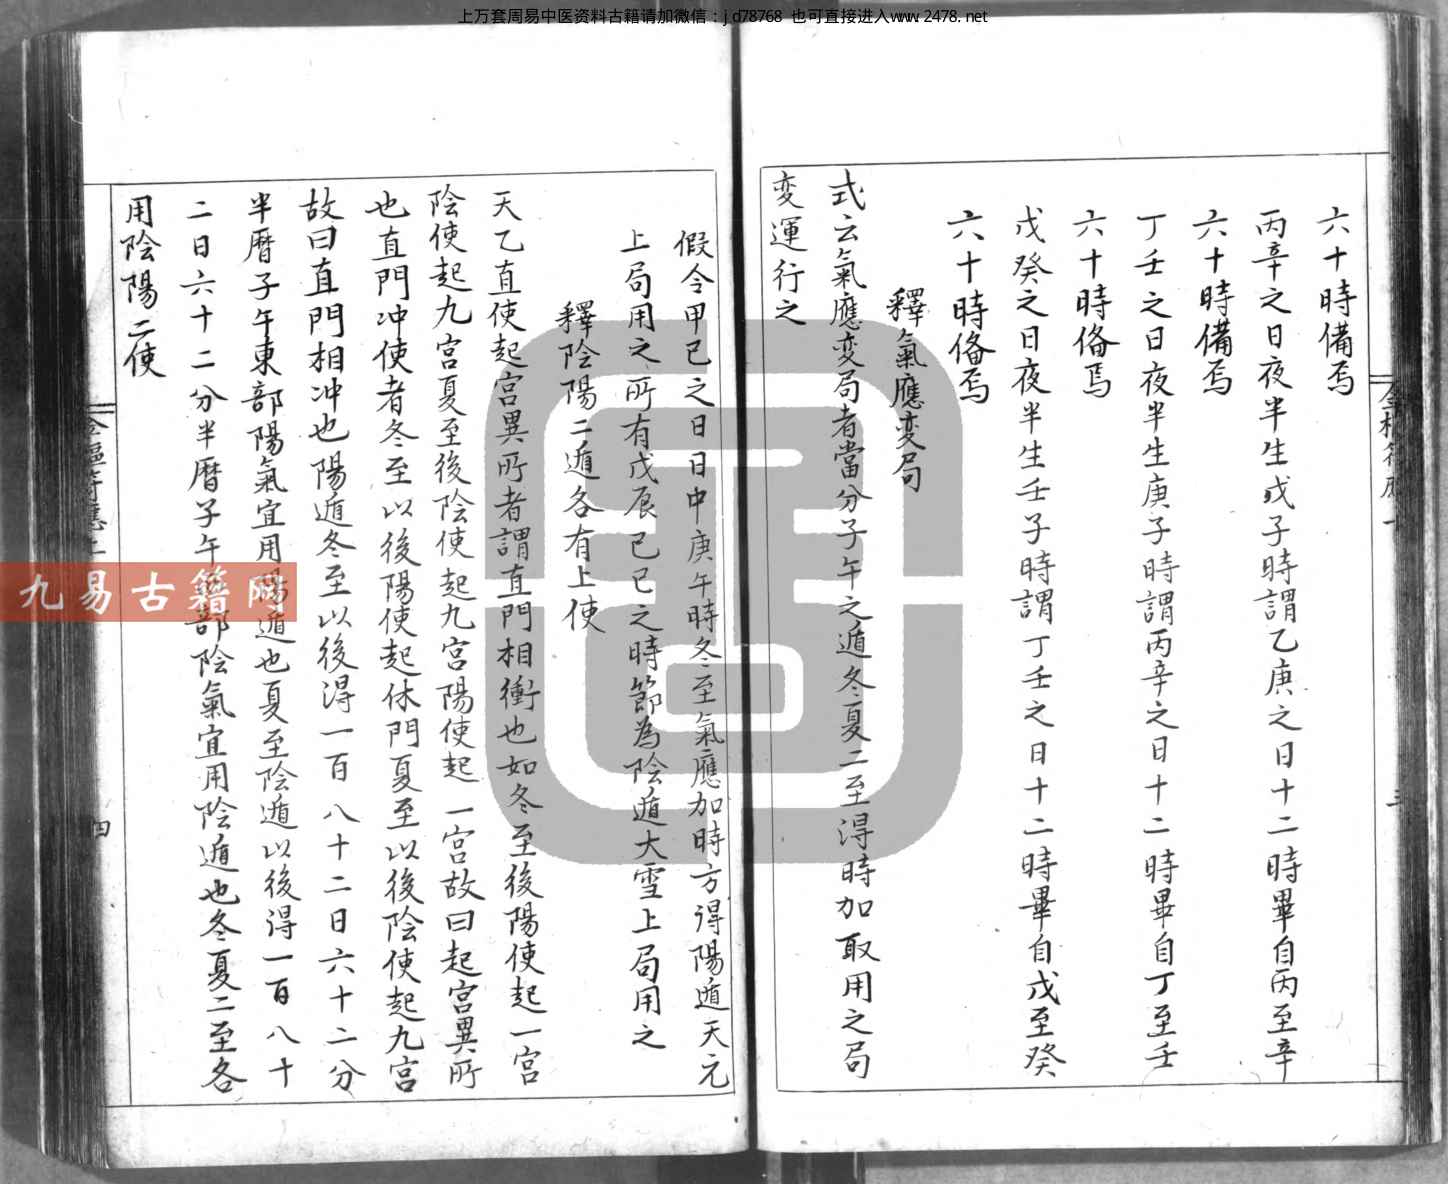 上万套周易中医资料古籍请加微信：jd78768 也可直接进入www.2478.net
六十時備焉
丙辛之日夜半生戊子時謂乙庚之日十二時畢自丙至辛
六十時備焉
丁壬之日夜半生庚子時謂丙辛之日十二時畢自丁至壬
六十時俻焉
戊癸之日夜半生壬子時謂丁壬之日十二時畢自戊至癸
六十時俻焉
釋氣應变局
式云氣應变局者當分子午之遁冬夏二至淂時加取用之局
变運行之
三
假令甲已之日日中庚午時冬至氣應加時方得陽遁天元
上局用之所有戊辰已巳之時節為陰遁大雪上局用之
釋陰陽二遁各有上使
天乙直使起宮異所者謂直門相衝也如冬至後陽使起一宮
陰使起九宮夏至後陰使起九宮陽使起一宮故曰起宮異所
也直門冲使者冬至以後陽使起休門夏至以後陰使起九宮
故曰直門相冲也陽遁冬至以後淂一百八十二日六十二分
半曆子午東部陽氣宜用陽遁也夏至陰遁以後淂一百八十
二日六十二分半曆子午部陰氣宜用陰遁也冬夏二至各
用陰陽二使
四
九易古籍网